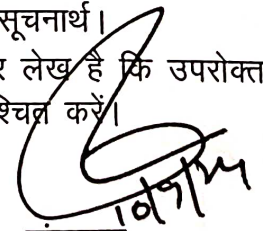 सूचनार्थ।
र लेख है कि उपरोक्त
श्चित करें।